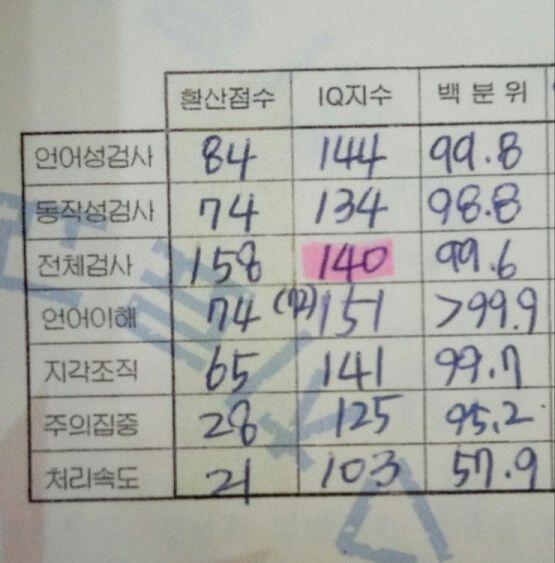 환산점수 IQ지수 백분위
언어성검사 84 144 99.8
동작성검사 74 134 98.8
전체검사 158 140 99.6
언어이해 74 (72) 151 >99.9
지각조직 65 141 99.7
주의집중 28 125 95.2
처리속도 21 103 57.9